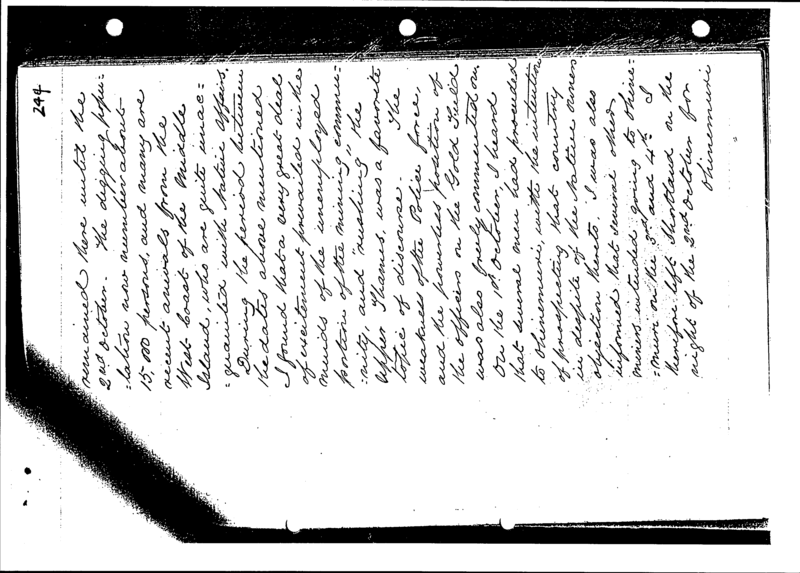 244
remained there until the
2nd October. The digging popu=
=lation now numbers about
15,000 persons, and many are
recent arrivals from the
West Coast of the Middle
Island, who are quite unac=
=quainted with native affairs.
During the period between
the dates above mentioned
I found that a very great deal
of excitement prevailed in the
minds of the unemployed
portion of the mining commu=
=nity, and "rushing" the
Upper Thames, was a favorite
topic of discourse. The
weakness of the Police force,
and the powerless position of
the officers on the Gold Field
was also freely commented on.
On the 1st October, I heard
that several men had proceeded
to Ohinemuri, with the intention
of prospecting that country
in despite of the native owners
objection thereto. I was also
informed that several other
miners intended going to Ohine=
=muri on the 3rd and 4th. I
therefore left Shortland on the
night of the 2nd October for
Ohinemuri